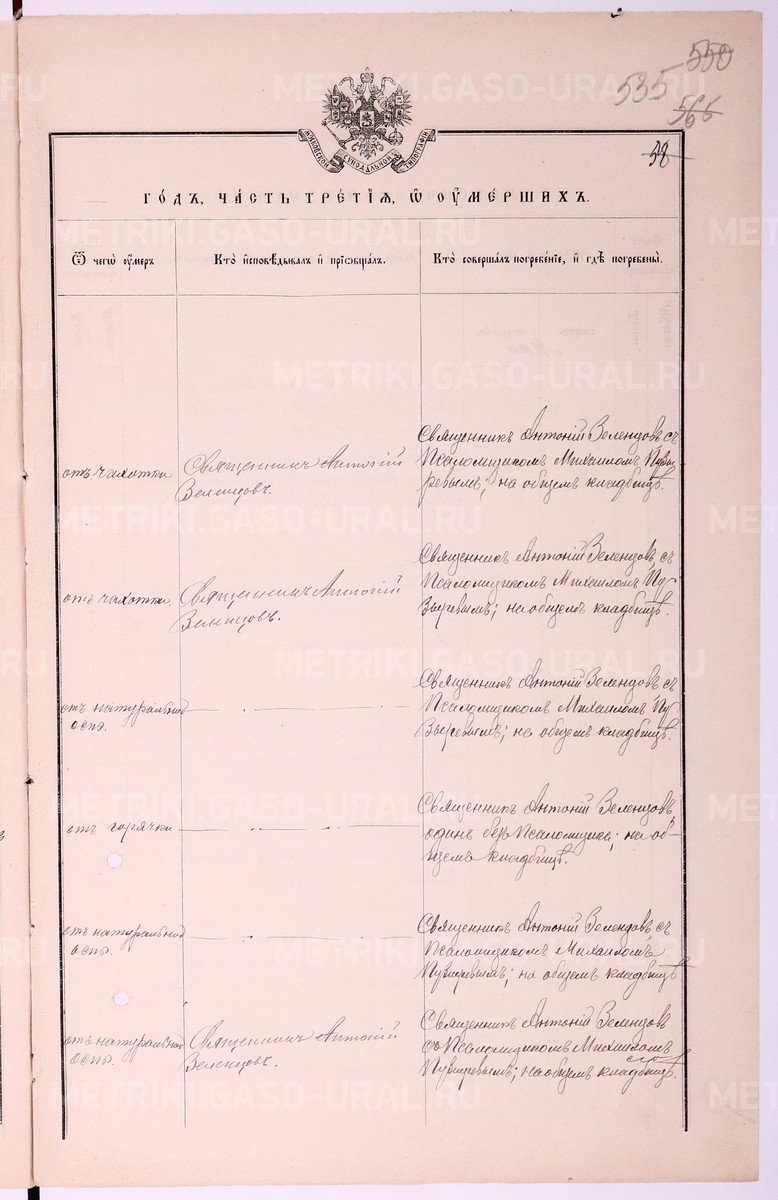 550
535
566
МОСКОВСКОЙ СѴНОДАЛЬНОЙ ТИПОГРАФІИ
58
ГО́ДЪ, ЧА́СТЬ ТРЕ́ТІѦ, Ѡ҆ ОУ҆МЕ́РШИХЪ.
Ѿ чегѡ̀ оу҆́меръ
Кто̀ и҆сповѣ́дывалъ и҆ прїѡбща́лъ.
Кто̀ соверша́лъ погребе́нїе, и҆ гдѣ̀ погребены̀.
отъ чахотки
Священникъ Антоній
Зеленцовъ.
Священникъ Антоній Зеленцовъ съ
Псаломщикомъ Михаиломъ Пузы-
ревымъ; на общемъ кладбищѣ.
отъ чахотки
Священникъ Антоній
Зеленцовъ.
Священникъ Антоній Зеленцовъ, съ
Псаломщикомъ Михаиломъ Пу-
зыревымъ; на общемъ кладбищѣ.
отъ натуральной
оспы.
Священникъ Антоній Зеленцовъ съ
Псаломщикомъ Михаиломъ Пу-
зыревымъ; на общемъ кладбищѣ.
отъ горячки
Священникъ Антоній Зеленцовъ,
одинъ безъ Псаломщика; на об-
щемъ кладбищѣ.
отъ натуральной
оспы.
Священникъ Антоній Зеленцовъ, съ
Псаломщикомъ Михаиломъ
Пузыревымъ; на общемъ кладбищѣ
отъ натуральной
оспы.
Священникъ Антоній
Зеленцовъ.
Священникъ Антоній Зеленцовъ
со Псаломщикомъ Михаиломъ
Пузыревымъ; на общемъ кладбищѣ.
METRIKI.GASO-URAL.RU